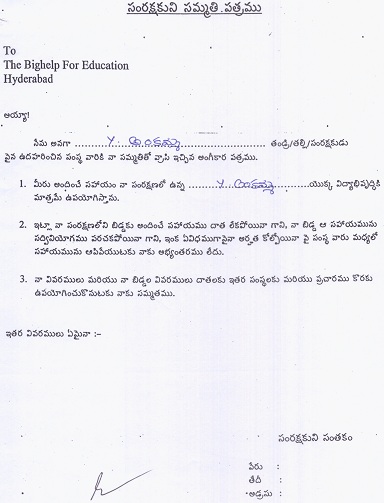 సంరక్షకుని సమ్మతి పత్రము
To
The Bighelp For Education
Hyderabad
అయ్యా!
నేను అనగా .................... తండ్రి/తల్లి/సంరక్షకుడు
పైన ఉదహరించిన సంస్థ వారికి నా సమ్మతితో వ్రాసి ఇచ్చిన అంగీకార పత్రము.
1. మీరు అందించే సహాయం నా సంరక్షణలో ఉన్న .................... యొక్క విద్యాభివృద్ధికి
మాత్రమే ఉపయోగిస్తాను.
2. ఇట్లా నా సంరక్షణలోని బిడ్డకు అందించే సహాయము దాత లేకపోయినా గాని, నా బిడ్డ ఆ సహాయమును
సద్వినియోగము పరచకపోయినా గాని, ఇంక ఏవిధముగానైనా అర్హత కోల్పోయినా పై సంస్థ వారు మధ్యలో
సహాయమును ఆపివేయుటకు నాకు అభ్యంతరము లేదు.
3. నా వివరములు మరియు నా బిడ్డల వివరములు దాతలకు ఇతర సంస్థలకు మరియు ప్రచారము కొరకు
ఉపయోగించుకొనుటకు నాకు సమ్మతము.
ఇతర వివరములు ఏమైనా :–
సంరక్షకుని సంతకం
పేరు :
తేదీ :
అడ్రసు :